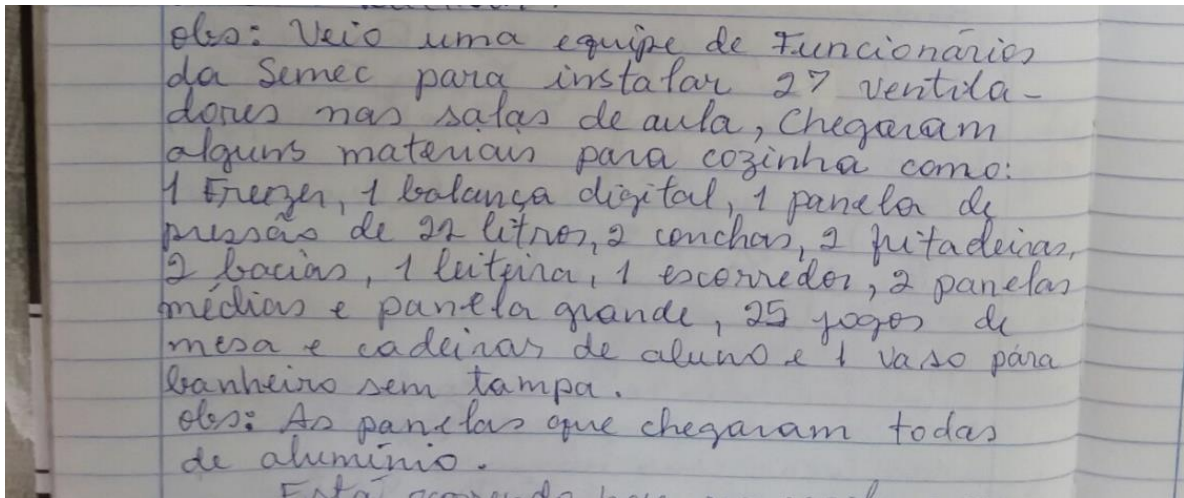 obs: Veio uma equipe de Funcionários
da Semec para instalar 27 ventila-
dores nas salas de aula, Chegaram
alguns materiais para cozinha como:
1 Frezer, 1 balança digital, 1 panela de
pressão de 22 litros, 2 conchas, 2 fritadeiras,
2 bacias, 1 leiteira, 1 escorredor, 2 panelas
médias e panela grande, 25 jogos de
mesa e cadeiras de aluno e 1 vaso para
banheiro sem tampa.
obs: As panelas que chegaram todas
de alumínio.
Está